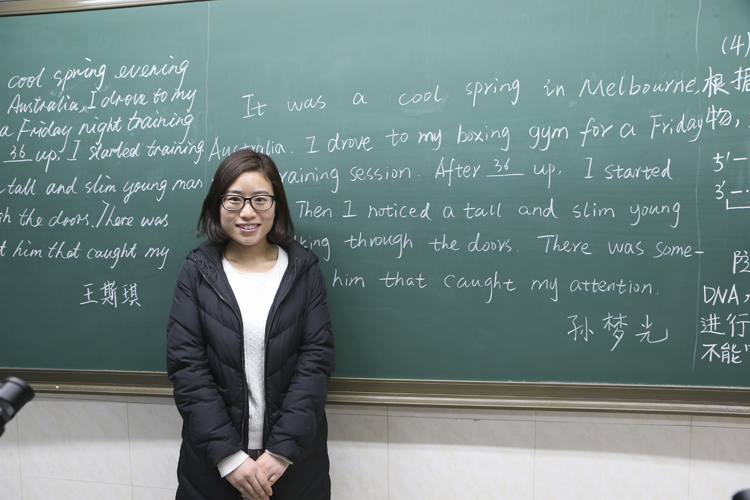 cool spring evening
Australia, I drove to my
a Friday night training
36 up, I started training
tall and slim young man
the doors. There was
him that caught my
王斯琪
It was a cool spring in Melbourne,
Australia. I drove to my boxing gym for a Friday
training session. After 36 up, I started
Then I noticed a tall and slim young
king through the doors. There was some-
him that caught my attention.
孙梦光
(4)
根据
物,
5'—
3'—
DNA,
进行
不能